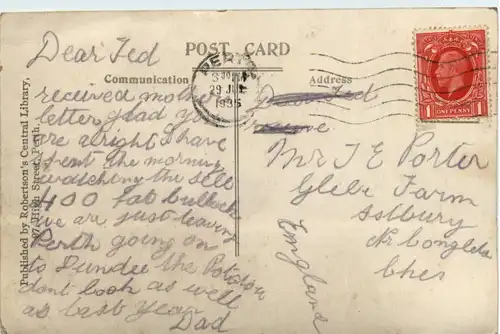 Dear Ted
POST CARD
Communication
Address
received mothers
letter glad you
are alright I have
spent the morning
watching the sell
400 fat bullocks
we are just leaving
Perth going on
to Dundee the Potatoes
dont look as well
as last year
Dad
Published by Robertson's Central Library,
High Street, Perth.
PERTH
3 30 PM
29 JUL
1935
ONE PENNY
1 1
Dear Ted
Mr T E Porter
Glebe Farm
Astbury
Nr Congleton
Ches
England